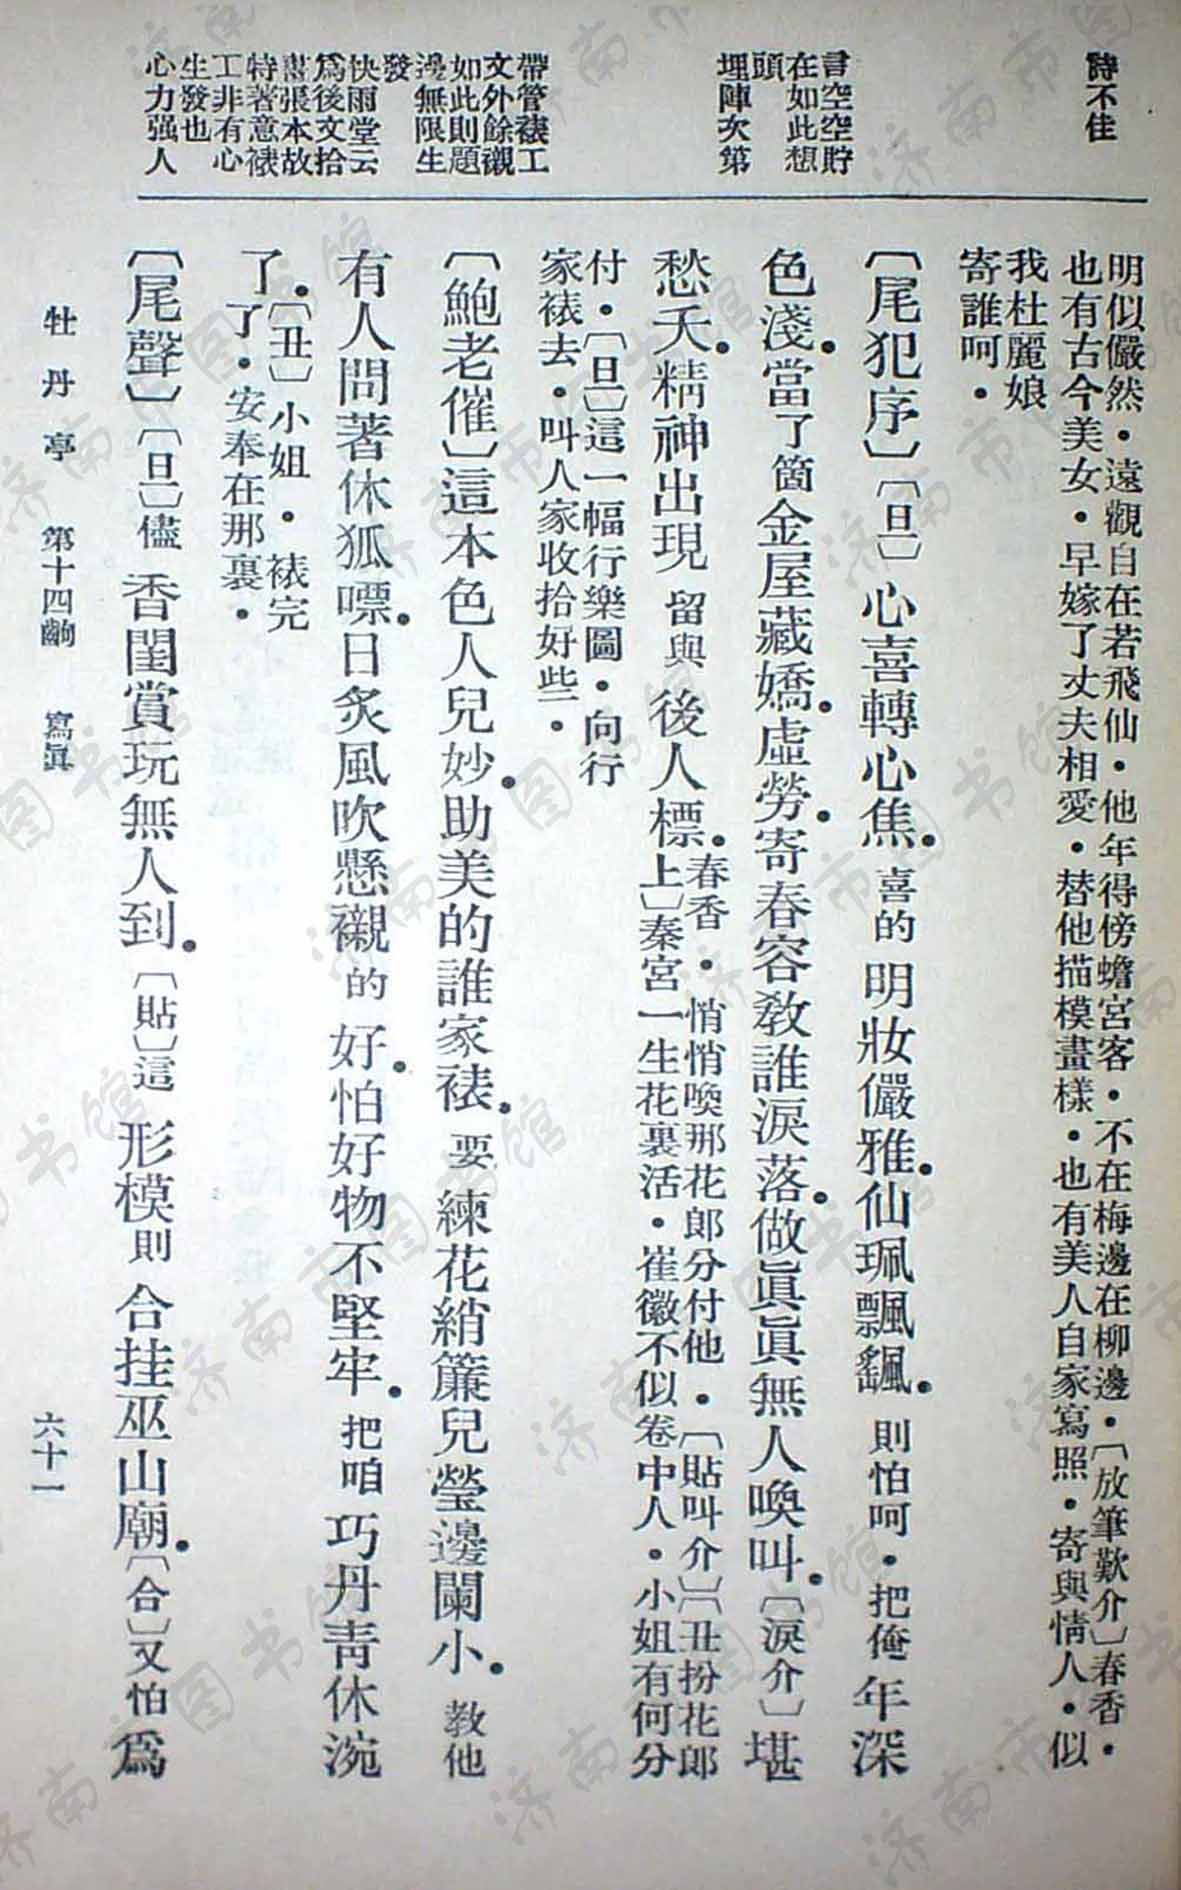 詩不佳
書空空貯
在如此想
頭
埋陣次第
帶管裱工
文外餘襯
如此則題
邊無限生
發
快雨堂云
爲後文拾
畫張本故
特著意裱
工非有心
生發也
心力强人
明似儼然·遠觀自在若飛仙·他年得傍蟾宮客·不在梅邊在柳邊·〔放筆歎介〕春香·
也有古今美女·早嫁了丈夫相愛·替他描模畫樣·也有美人自家寫照·寄與情人·似
我杜麗娘
寄誰呵·
〔尾犯序〕〔旦〕心喜轉心焦·喜的明妝儼雅·仙珮飄颻·則怕呵·把俺年深
色淺·當了箇金屋藏嬌·虛勞·寄春容教誰淚落·做眞眞無人喚叫·〔淚介〕堪
愁夭·精神出現留與後人標·
春香·悄悄喚那花郎分付他·〔貼叫介〕〔丑扮花郎
上〕秦宮一生花裏活·崔徽不似卷中人·小姐有何分
付·〔旦〕這一幅行樂圖·向行
家裱去·叫人家收拾好些·
〔鮑老催〕這本色人兒妙·助美的誰家裱·要練花綃簾兒瑩邊闌小·教他
有人問著休狐嘌·日炙風吹懸襯的好·怕好物不堅牢·把咱巧丹青休涴
了·
〔丑〕小姐·裱完
了·安奉在那裏·
〔尾聲〕〔旦〕儘香閨賞玩無人到·〔貼〕這形模則合挂巫山廟·〔合〕又怕爲
牡丹亭 第十四齣 寫眞 六十一